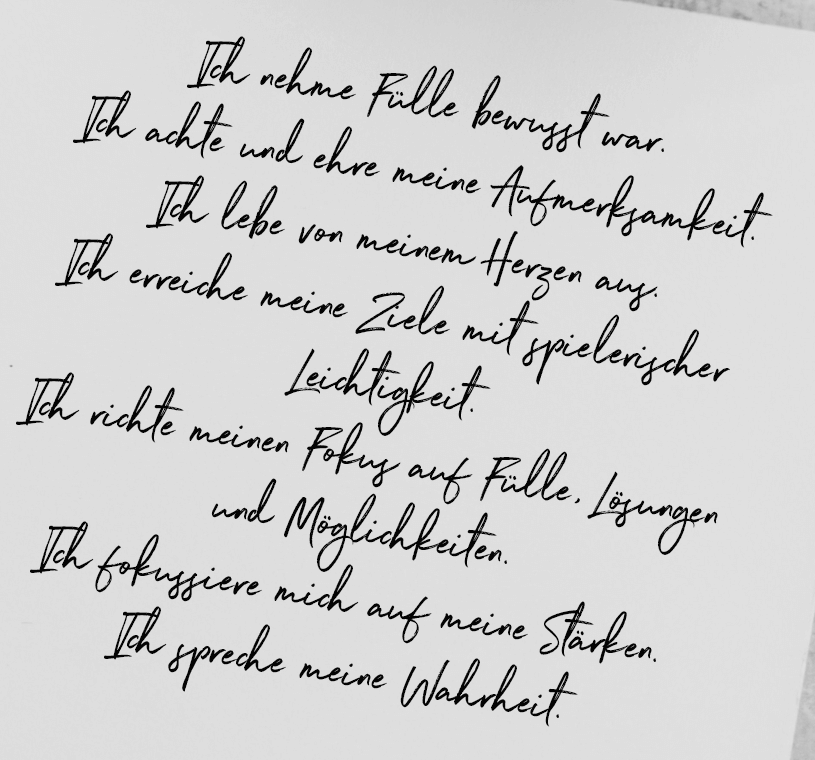 Ich nehme Fülle bewusst war.
Ich achte und ehre meine Aufmerksamkeit.
Ich lebe von meinem Herzen aus.
Ich erreiche meine Ziele mit spielerischer
Leichtigkeit.
Ich richte meinen Fokus auf Fülle, Lösungen
und Möglichkeiten.
Ich fokussiere mich auf meine Stärken.
Ich spreche meine Wahrheit.